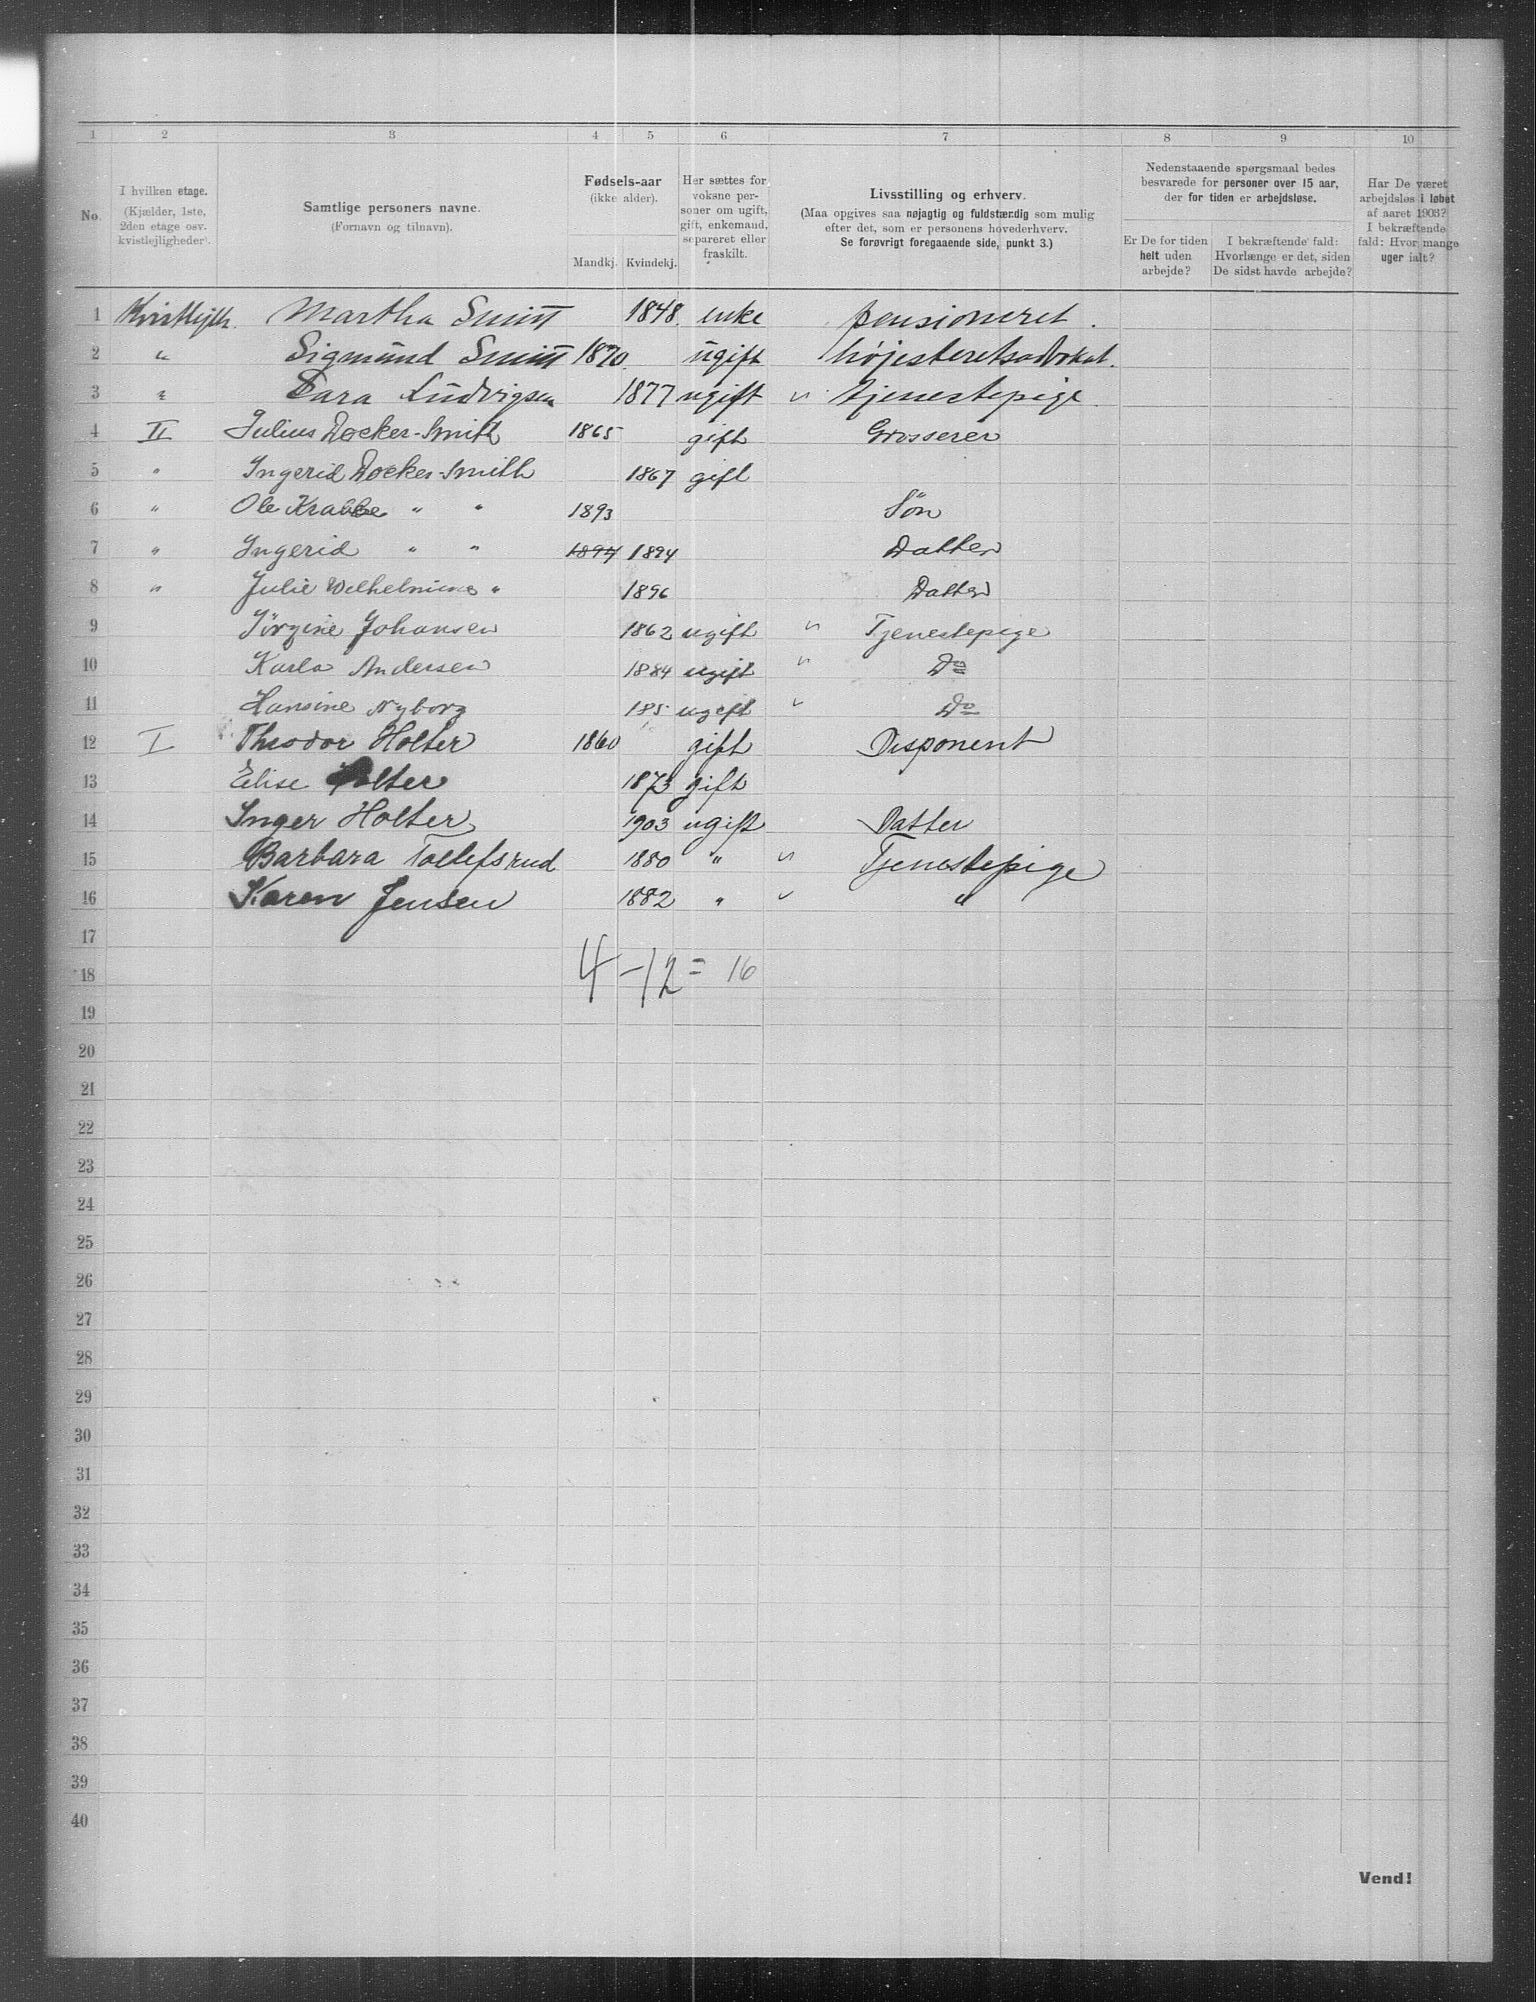 1 2 3 4 5 6 7 8 9 10
No. I hvilken etage. (Kjælder, 1ste, 2den etage osv. kvistlejligheder). Samtlige personers navne. (Fornavn og tilnavn). Fødsels-aar (ikke alder). Mandkj. Kvindekj. Her sættes for voksne personer om ugift, gift, enkemand, separeret eller fraskilt. Livsstilling og erhverv. (Maa opgives saa nøjagtig og fuldstændig som mulig efter det, som er personens hovederhverv. Se forøvrigt foregaaende side, punkt 3.) Nedenstaaende spørgsmaal bedes besvarede for personer over 15 aar, der for tiden er arbejdsløse. Er De for tiden helt uden arbejde? I bekræftende fald: Hvorlænge er det, siden De sidst havde arbejde? Har De været arbejdsløs i løbet af aaret 1903? I bekræftende fald: Hvor mange uger ialt?
1 Kvistlejlh. Martha Smitt 1848. enke pensioneret.
2 " Sigmund Smitt 1870. ugift højesteretsadvokat.
3 " Sara Ludvigsen 1877 ugift " tjenestepige.
4 II Julius Docker-Smith 1865 gift Grosserer
5 " Ingerid Docker-Smith 1867 gift
6 " Ole Krabbe " " 1893 Søn
7 " Ingerid " " 1894 1894 Datter
8 " Julie Wilhelmine " 1896 Datter
9 Jørgine Johansen 1862 ugift " Tjenestepige
10 Karla Andersen 1884 ugift " Do
11 Hansine Nyborg ugift " Do
12 I Theodor Holter 1860 gift Disponent
13 Elise Holter 1873 gift
14 Inger Holter 1903 ugift Datter
15 Barbara Tollefsrud 1880 " " Tjenestepige
16 Karen Jensen 1882 " " "
17
18 4 - 12 = 16
19
20
21
22
23
24
25
26
27
28
29
30
31
32
33
34
35
36
37
38
39
40
Vend!